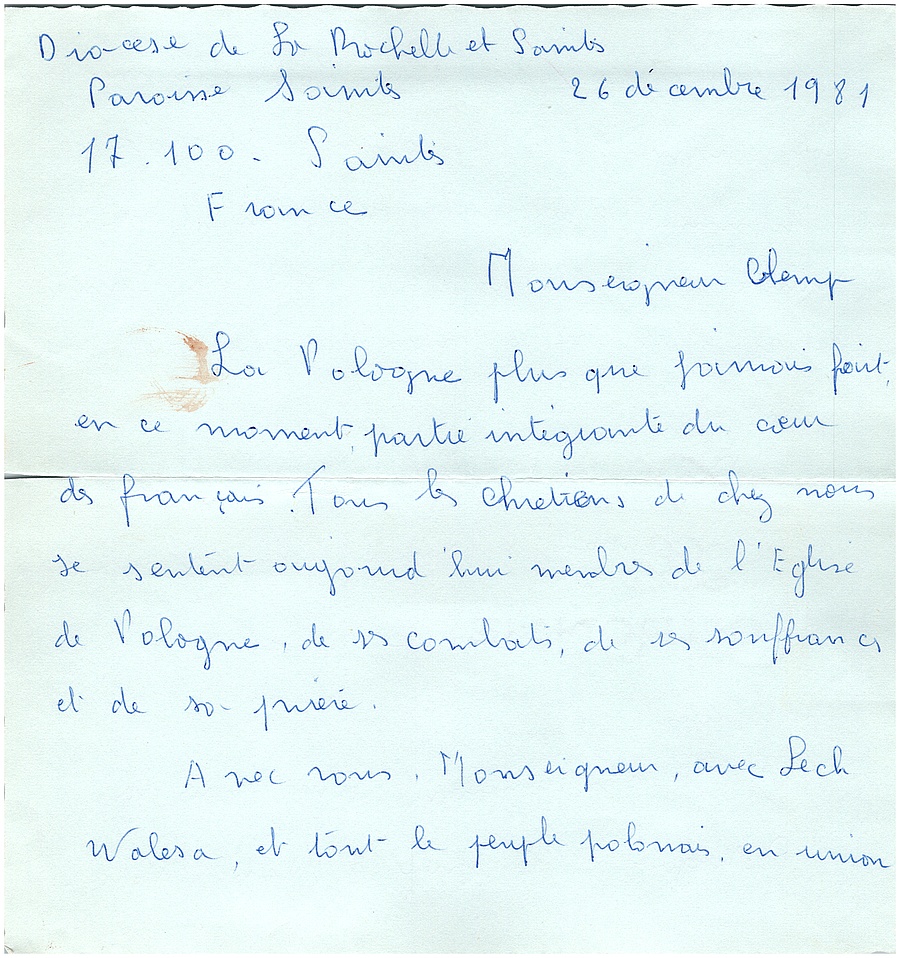 Diocèse de La Rochelle et Saintes
Paroisse Saintes 26 décembre 1981
17.100. Saintes
France
Monseigneur Glemp
La Pologne plus que jamais fait,
en ce moment, partie intégrante du cœur
des français. Tous les chrétiens de chez nous
se sentent aujourd'hui membres de l'Eglise
de Pologne, de ses combats, de ses souffrances
et de sa prière.
Avec vous, Monseigneur, avec Lech
Walesa, et tout le peuple polonais, en union